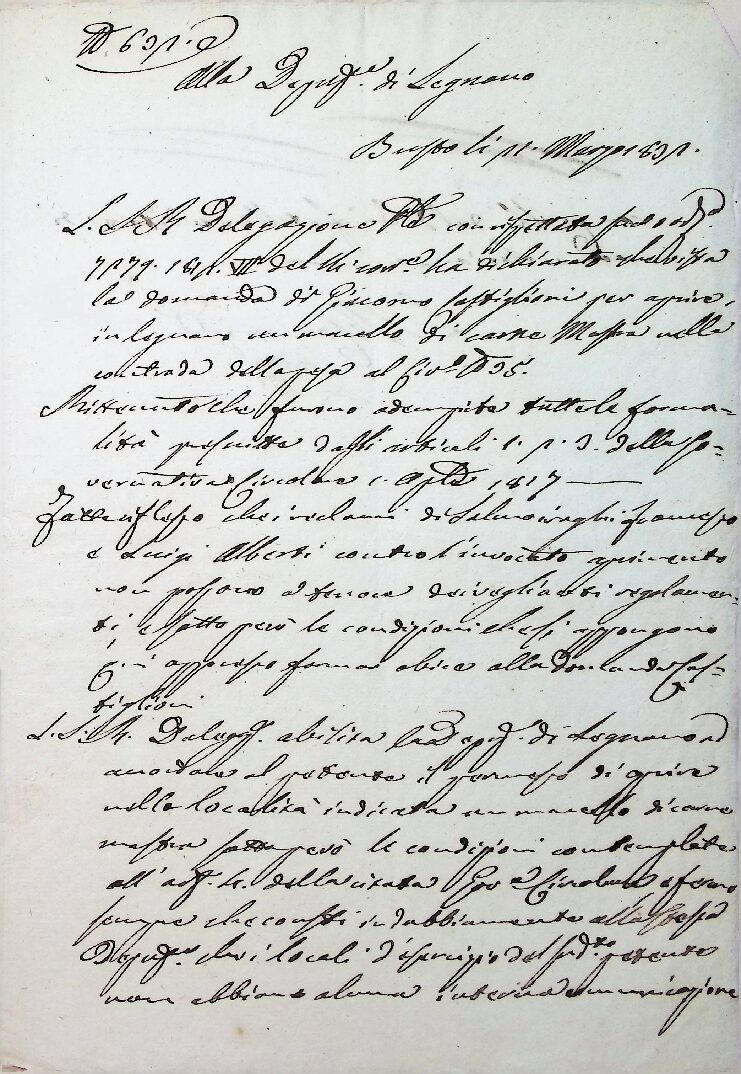 Alla Deput.e di Legnano
Busto li Marzo
L. I. R. Delegazione Ple con rispettata sua ord.a
del corr.e ha dichiarato che vista
la domanda di Giacomo Castiglioni per aprire
in Legnano un macello di carne Mastra nella
contrada della al Civ.o N 35.
Rittenuto che furono adempite tutte le forma-
lità prescritte dagli articoli 1. 2. 3. della Go-
vernativa Circolare 1817
riflesso che i reclami di Salmoiraghi Francesco
e Luigi Alberti contro l'invocato aprimento
non possono a tenore dei veglianti regolamen-
ti, e sotto però le condizioni che si appongono
appresso formar obice alla domanda Cas-
tiglioni
L. I. R. Delegaz. abilita la Deput. di Legnano ad
accordare al petente il permesso di aprire
nella località indicata un macello di carne
mastra sotto però le condizioni contemplate
all'art. 4. della citata Gov.a Circolare e fermo
sempre che consti indubbiamente alla stessa
Deput.e che i locali d'esercizio del sud.to petente
non abbiano alcuna interna comunicazione